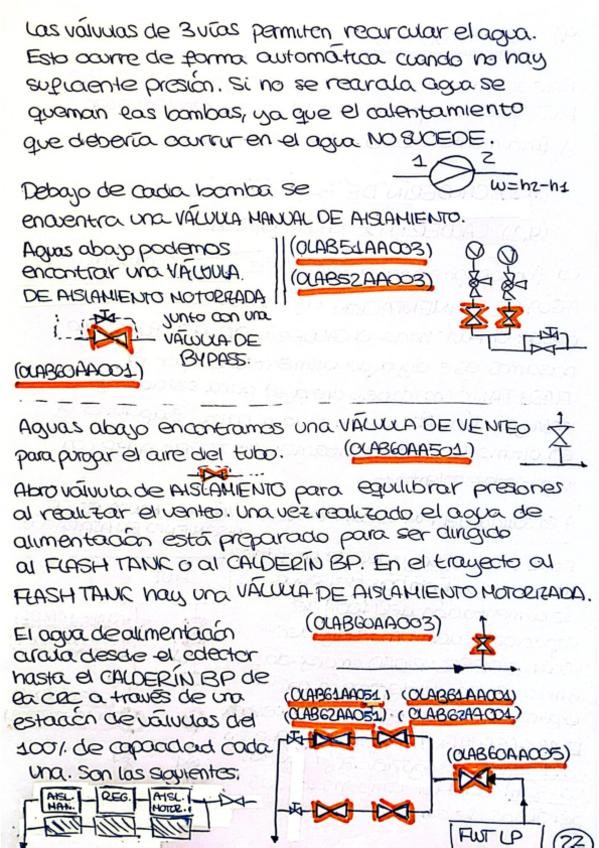 Las válvulas de 3 vías permiten recircular el agua.
Esto ocurre de forma automática cuando no hay
suficiente presión. Si no se recircula agua se
queman las bombas, ya que el calentamiento
que debería ocurrir en el agua NO SUCEDE.
1 2
w=h2-h1
Debajo de cada bomba se
encuentra una VÁLVULA MANUAL DE AISLAMIENTO.
Aguas abajo podemos
encontrar una VÁLVULA
DE AISLAMIENTO MOTORIZADA
junto con una
VÁLVULA DE
BYPASS.
(0LAB60AA001)
(0LAB51AA003)
(0LAB52AA003)
Aguas abajo encontramos una VÁLVULA DE VENTEO
para purgar el aire del tubo.
(0LAB60AA501)
Abro válvula de AISLAMIENTO para equilibrar presiones
al realizar el venteo. Una vez realizado el agua de
alimentación está preparado para ser dirigido
al FLASH TANK o al CALDERÍN BP. En el trayecto al
FLASH TANK hay una VÁLVULA DE AISLAMIENTO MOTORIZADA.
(0LAB60AA003)
El agua de alimentación
circula desde el colector
hasta el CALDERÍN BP de
la CRC a través de una
estación de válvulas del
100% de capacidad cada
una. Son las siguientes:
(0LAB61AA051) (0LAB61AA001)
(0LAB62AA051) (0LAB62AA001)
(0LAB60AA005)
AISL. MAN.
REG.
AISL. MOTOR.
FWT LP
22